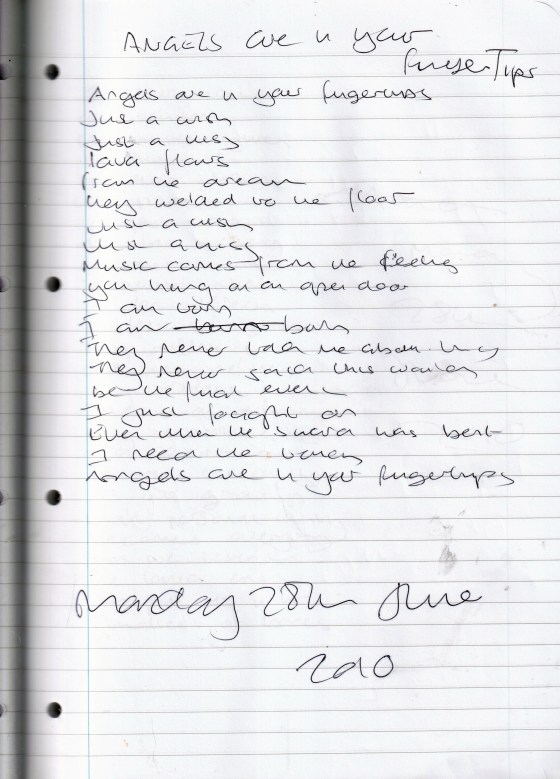 ANGELS are in your
finger Tips
Angels are in your fingertips
Just a wish
Just a kiss
lava flows
from the
they welded to the floor
Just a wish
Just a kiss
Music comes from the feeling
you hung on an open door
I am
I am
They never told me about this
They never said this would
be the final
I just fought on
Even when the sword was bent
I need the
Angels are in your fingertips
Monday 28th June
2010